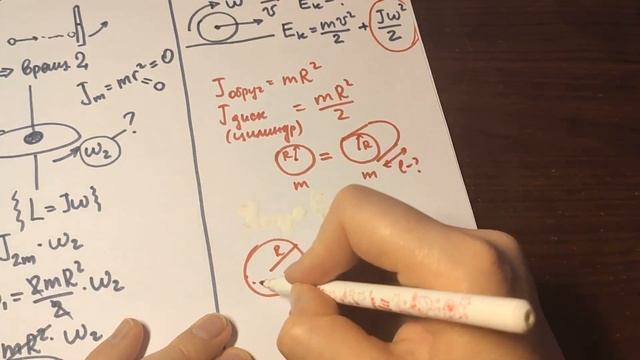 ⇒ вращ 2
J_m = mr² = 0
= 0
ω₂ ?
{L = Jω}
J_2m · ω₂
= 2mR²/2 · ω₂
mR² · ω₂
ω
E_k = mv²/2 + Jω²/2
J обруч = mR²
J диск = mR²/2
(цилиндр)
R = R
m m l - ?
R